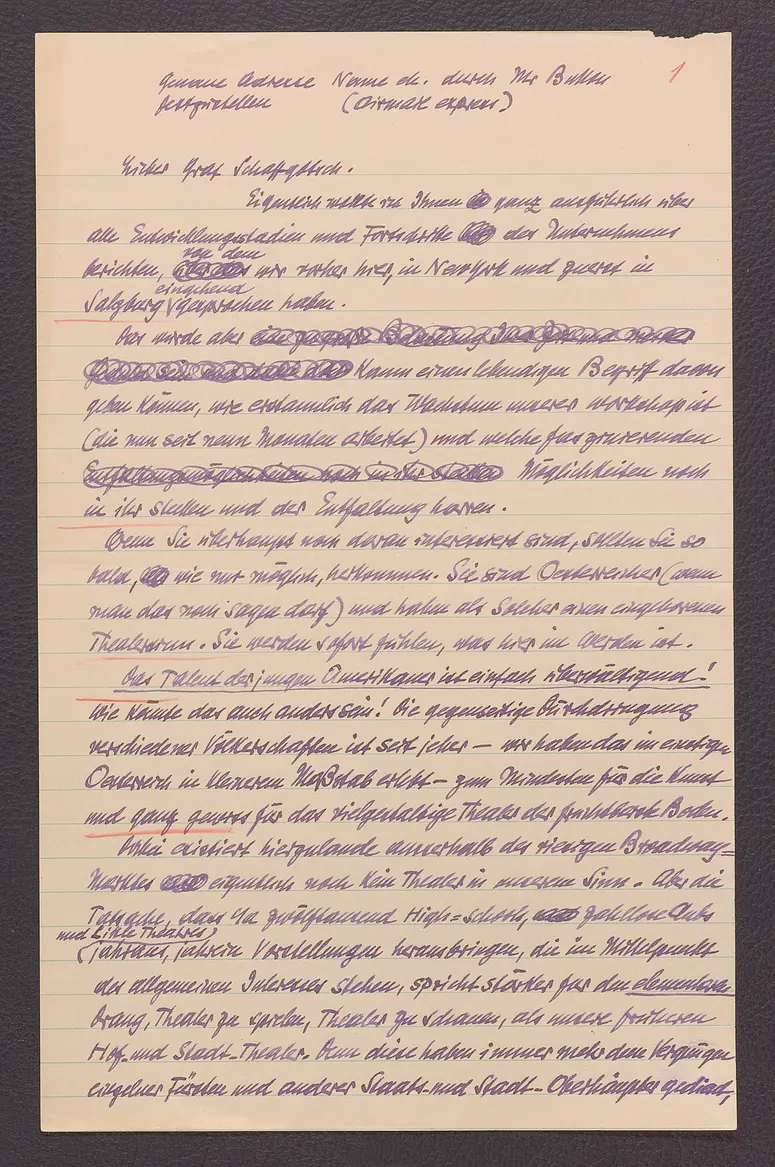 genaue Adresse Name etc. durch Mr
festzustellen (Airmail express)
1
Lieber Graf Schaffgotsch.
Eigentlich wollte ich Ihnen ganz ausführlich über
alle Entwicklungsstadien und Fortschritte des Unternehmens
von dem
berichten, wir vorher hier, in NewYork und zuerst in
eingehend
Salzburg gesprochen haben.
Das würde aber
kaum einen lebendigen Begriff davon
geben können, wie erstaunlich das Wachstum unserer workshop ist
(die nun seit neun Monaten arbeitet) und welche faszinierenden
Möglichkeiten noch
in ihr stecken und der Entfaltung harren.
Wenn Sie überhaupt noch daran interessiert sind, sollten Sie so
bald, wie nur möglich, herkommen. Sie sind Oesterreicher (wenn
man das noch sagen darf) und haben als Solcher einen eingeborenen
Theatersinn. Sie werden sofort fühlen, was hier im Werden ist.
Das Talent der jungen Amerikaner ist einfach überwältigend!
Wie könnte das auch anders sein! Die gegenseitige Durchdringung
verschiedener Völkerschaften ist seit jeher – wir haben das im einstigen
Oesterreich in kleinerem Maßstab erlebt – zum Mindesten für die Kunst
und ganz gewiss für das vielgestaltige Theater der fruchtbarste Boden.
Dabei existiert hierzulande ausserhalb des riesigen Broadway-
Marktes eigentlich noch kein Theater in unserem Sinn. Aber die
Tatsache, dass zwölftausend High=schools, zahllose Clubs
und Little Theatres
jahraus, jahrein Vorstellungen herausbringen, die im Mittelpunkt
des allgemeinen Interesses stehen, spricht stärker für den elementaren
Drang, Theater zu spielen, Theater zu schauen, als unsere früheren
Hof- und Stadt-Theater. Denn diese haben immer mehr dem Vergnügen
einzelner Fürsten und anderer Staats- und Stadt-Oberhäupter gedient,